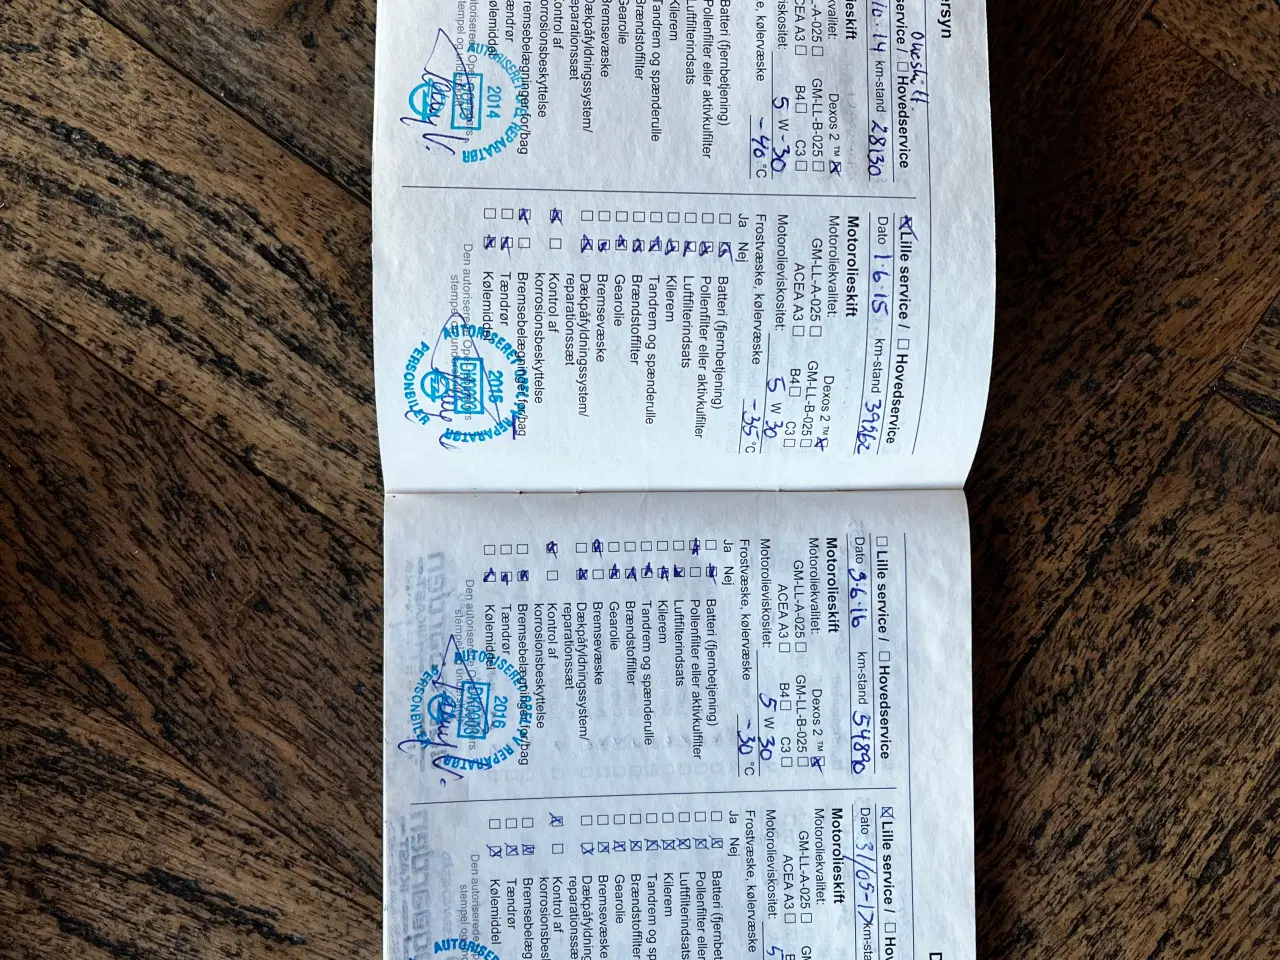 ersyn
Oueskift.
service / ☐ Hovedservice
10.14 km-stand 28130
lieskift
ekvalitet: Dexos 2 ™ ☒
-LL-A-025 ☐ GM-LL-B-025 ☐
ACEA A3 ☐ B4 ☐ C3 ☐
viskositet: 5 W -30
væske, kølervæske -40 °C
Batteri (fjernbetjening)
Pollenfilter eller aktivkulfilter
Luftfilterindsats
Kilerem
Tandrem og spænderulle
Brændstoffilter
Gearolie
Bremsevæske
Dækpåfyldningssystem/
reparationssæt
Kontrol af
korrosionsbeskyttelse
Bremsebelægninger for/bag
Tændrør
Kølemiddel
autoriserede Opel
stempel og
AUTORISERET OPEL REPARATØR
2014
☒ Lille service / ☐ Hovedservice
Dato 1.6.15 km-stand 39262
Motorolieskift
Motoroliekvalitet: Dexos 2 ™ ☒
GM-LL-A-025 ☐ GM-LL-B-025 ☐
ACEA A3 ☐ B4 ☐ C3 ☐
Motorolieviskositet: 5 W 30
Frostvæske, kølervæske -35 °C
Ja Nej
☐ ☒ Batteri (fjernbetjening)
☐ ☒ Pollenfilter eller aktivkulfilter
☐ ☒ Luftfilterindsats
☐ ☒ Kilerem
☐ ☒ Tandrem og spænderulle
☐ ☒ Brændstoffilter
☐ ☒ Gearolie
☐ ☒ Bremsevæske
☐ ☒ Dækpåfyldningssystem/
reparationssæt
☒ ☐ Kontrol af
korrosionsbeskyttelse
☒ ☐ Bremsebelægninger for/bag
☐ ☒ Tændrør
☐ ☒ Kølemiddel
Den autoriserede Opel
stempel og
AUTORISERET OPEL REPARATØR
2015
PERSONBILER
☐ Lille service / ☐ Hovedservice
Dato 9.6.16 km-stand 54890
Motorolieskift
Motoroliekvalitet: Dexos 2 ™ ☒
GM-LL-A-025 ☐ GM-LL-B-025 ☐
ACEA A3 ☐ B4 ☐ C3 ☐
Motorolieviskositet: 5 W 30
Frostvæske, kølervæske -30 °C
Ja Nej
☐ ☒ Batteri (fjernbetjening)
☒ ☐ Pollenfilter eller aktivkulfilter
☐ ☒ Luftfilterindsats
☐ ☒ Kilerem
☐ ☒ Tandrem og spænderulle
☐ ☒ Brændstoffilter
☐ ☒ Gearolie
☒ ☐ Bremsevæske
☐ ☒ Dækpåfyldningssystem/
reparationssæt
☒ ☐ Kontrol af
korrosionsbeskyttelse
☐ ☒ Bremsebelægninger for/bag
☐ ☒ Tændrør
☐ ☒ Kølemiddel
Den autoriserede
stempel
AUTORISERET OPEL REPARATØR
2016
PERSONBILER
☒ Lille service / ☐ Hov
Dato 31/05-17 km-sta
Motorolieskift
Motoroliekvalitet:
GM-LL-A-025 ☐ GM
ACEA A3 ☐
Motorolieviskositet: 5
Frostvæske, kølervæske
Ja Nej
☐ ☒ Batteri (fjernbet
☐ ☒ Pollenfilter eller
☐ ☒ Luftfilterindsats
☐ ☒ Kilerem
☐ ☒ Tandrem og sp
☐ ☒ Brændstoffilter
☐ ☒ Gearolie
☐ ☒ Bremsevæske
☐ ☒ Dækpåfyldning
reparationssæt
☒ ☐ Kontrol af
korrosionsbes
☐ ☒ Bremsebelæg
☐ ☒ Tændrør
☐ ☒ Kølemiddel
Den autoriserede
stempel og
AUTORISE